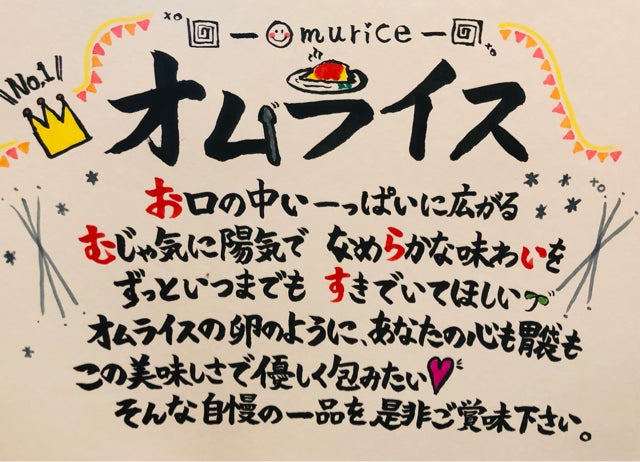 ー☺murice ー
\\No.1//
オムライス
お口の中いーっぱいに広がる
むじゃ気に陽気で なめらかな味わいを
ずっといつまでも すきでいてほしい
オムライスの卵のように、あなたの心も胃袋も
この美味しさで優しく包みたい♥
そんな自慢の一品を是非ご賞味下さい。